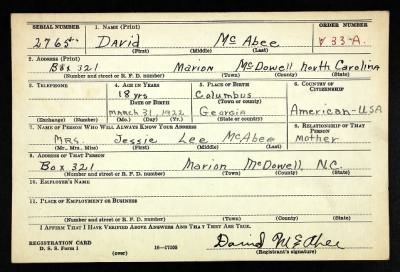 SERIAL NUMBER 1. NAME (Print) ORDER NUMBER
2765 David McAbee V 33-A.
(First) (Middle) (Last)
2. ADDRESS (Print)
Box 321 Marion McDowell North Carolina
(Number and street or R. F. D. number) (Town) (County) (State)
3. TELEPHONE 4. AGE IN YEARS 5. PLACE OF BIRTH 6. COUNTRY OF CITIZENSHIP
18 yrs. Columbus
DATE OF BIRTH (Town or county)
March 31, 1922 Georgia American-USA
(Exchange) (Number) (Mo.) (Day) (Yr.) (State or country)
7. NAME OF PERSON WHO WILL ALWAYS KNOW YOUR ADDRESS 8. RELATIONSHIP OF THAT PERSON
Mrs. Jessie Lee McAbee Mother
(Mr. Mrs. Miss) (First) (Middle) (Last)
9. ADDRESS OF THAT PERSON
Box 321 Marion McDowell, N.C.
(Number and street or R. F. D. number) (Town) (County) (State)
10. EMPLOYER'S NAME
11. PLACE OF EMPLOYMENT OR BUSINESS
(Number and street or R. F. D. number) (Town) (County) (State)
I AFFIRM THAT I HAVE VERIFIED ABOVE ANSWERS AND THAT THEY ARE TRUE.
REGISTRATION CARD David McAbee
D. S. S. Form 1 (over) 16-17105 (Registrant's signature)